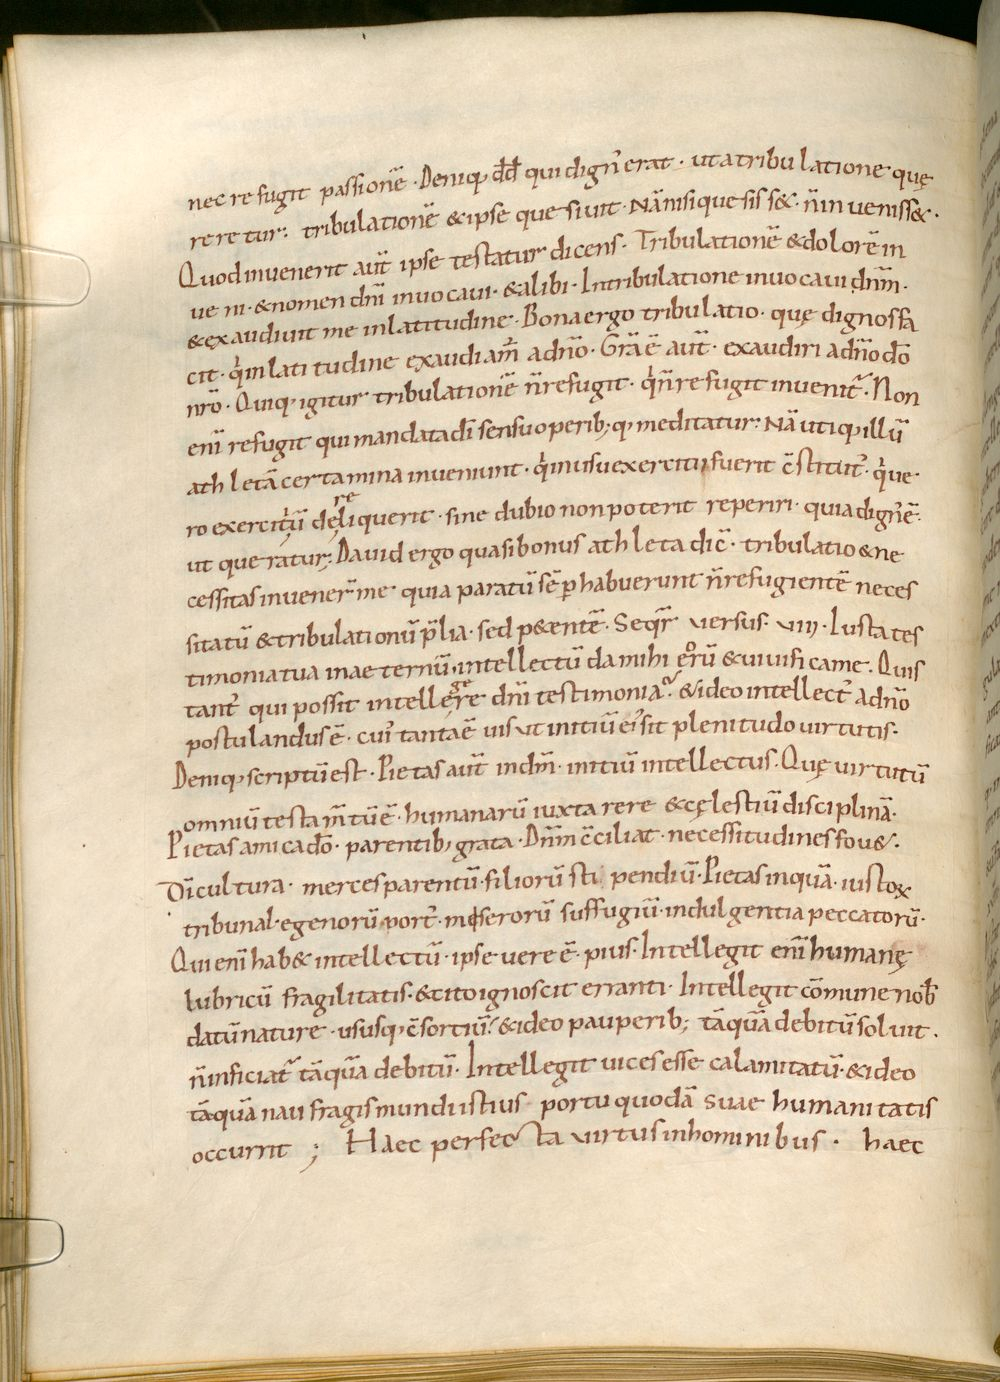 nec refugit passionē · Deniq; dd̄ qui dign' erat · ut a tribulatione quę
reretur: tribulationē & ipse quesiuit · Nā nisi quesiss&· n̄ inueniss&·
Quod inuenerit aut̄ ipse testatur dicens · Tribulationē & dolorē in
ueni · & nomen dn̄i inuocaui · & alibi · In tribulatione inuocaui dn̄m ·
& exaudiuit me in latitudine · Bona ergo tribulatio · quę dignos fa
cit · q' in latitudine exaudiam̄ a dn̄o · Gr̄a ē aut̄ · exaudiri a dn̄o dō
nr̄o · Quiq; igitur tribulationē n̄ refugit · q' n̄ refugit inuenit̄ · Non
eni refugit qui mandata dī sensu operib; q; meditatur: Nā utiq; illū
athletā certamina inueniunt · q' in usu exercitii fuerit c̄stitut' · q' ue·
ro exercitiū dereliquerit · sine dubio non poterit reperiri · quia dign' ē·
ut queratur; Dauid ergo quasi bonus athleta dic̄ · tribulatio & ne
cessitas inuener̄ me · quia paratū sēp habuerunt n̄ refugientē neces
sitatū & tribulationū p̄lia · sed p&entē · Seqr̄ versus · VIII · Iusta tes
timonia tua in aeternū · intellectū da mihi eorū & uiuifica me. Quis
tant' qui possit intellegere dn̄i testimonia? & ideo intellect' a dn̄o
postulandus ē · cui' tanta ē uis ut initiū ei' sit plenitudo virtutis·
Deniq; scriptū est · Pietas aut̄ in dn̄m · initiū intellectus · Quę virtutū
omniū testam̄tū ē · humanarū iuxta rere & cęlestiū disciplinā ·
Pietas amica dō · parentib; grata · Dn̄m c̄ciliat · necessitudines fou& ·
Dī cultura · merces parentū · filiorū stipendiū · Pietas inquā · iustoꝝ
tribunal · egenorū port' · miserorū suffugiū · indulgentia peccatorū ·
Qui eni hab& intellectū · ipse vere ē · pius · Intellegit eni humanę
lubricū fragilitatis · & cito ignoscit erranti · Intellegit cōmune nob̄
datū nature · ususq; c̄sortiū: & ideo pauperib; tāquā debitū soluit ·
n̄ inficiat̄ tāquā debitū · Intellegit uices esse calamitatū · & ideo
tāquā naufragis mundi istius portu quodā suae humanitatis
occurrit ; Haec perfecta virtus in hominibus · haec